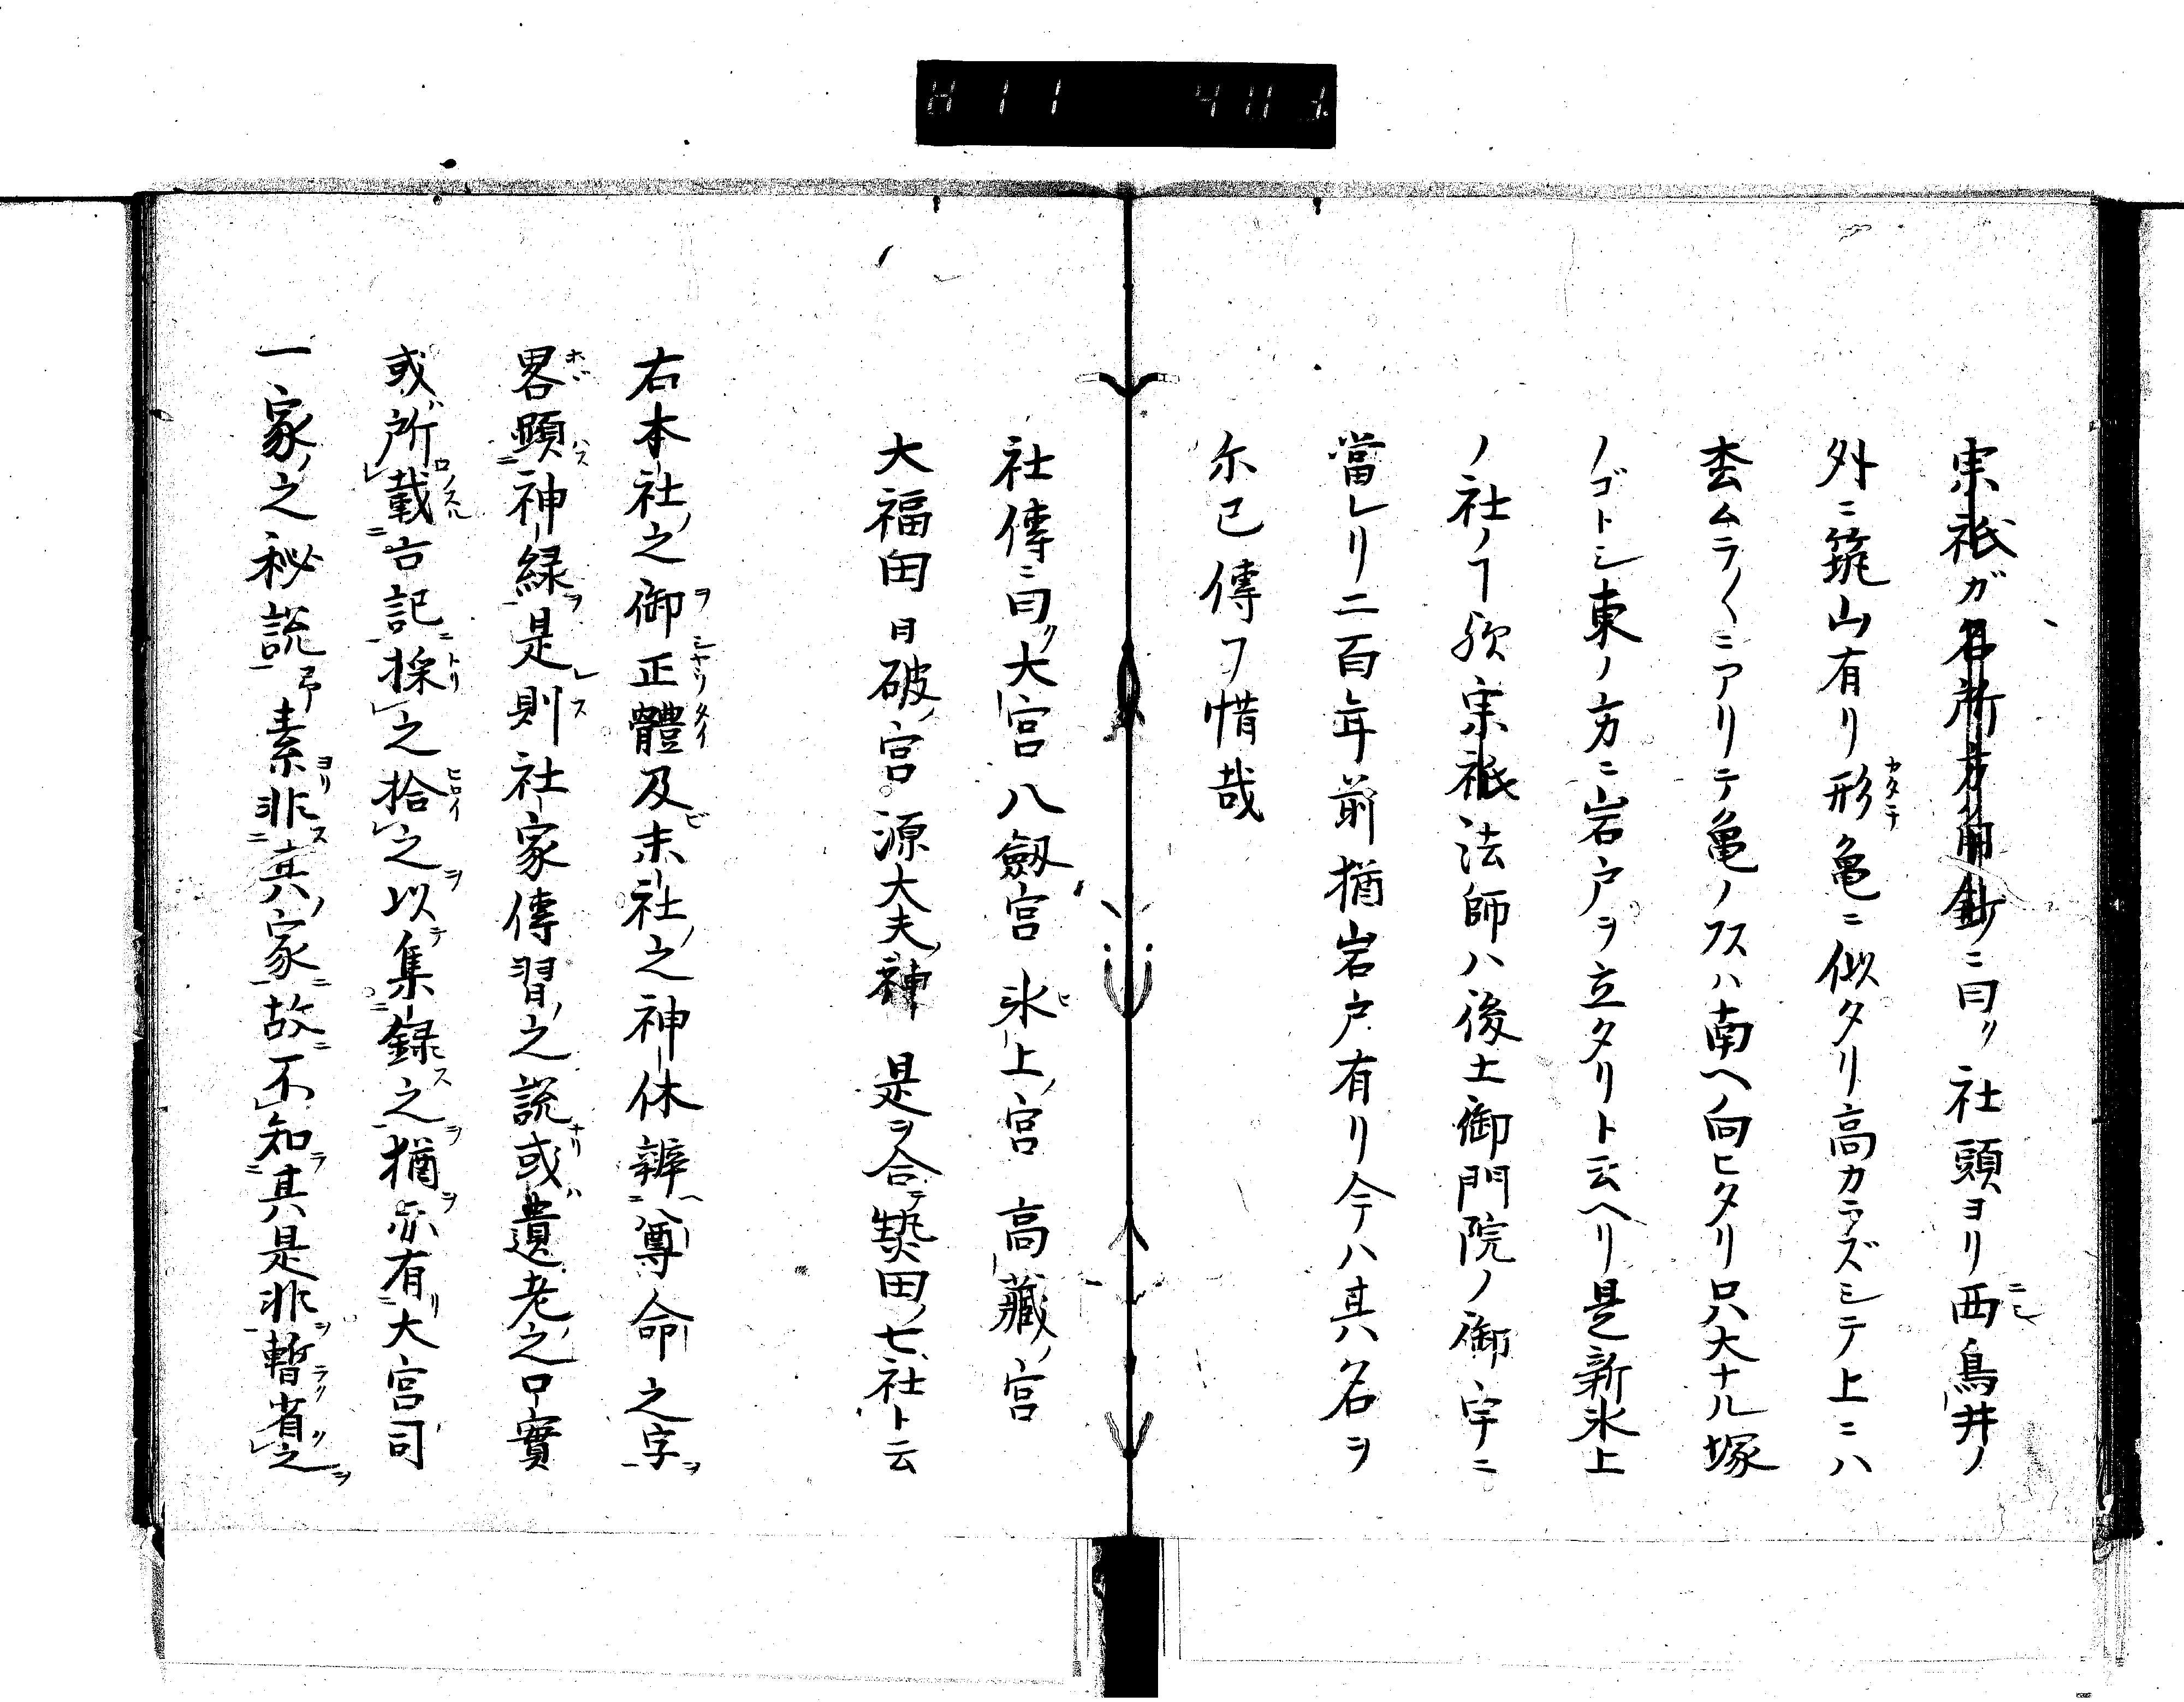 宗祇ガ名所方角鈔ニ曰ク社頭ヨリ西鳥井ノ
外ニ築山有リ形亀ニ似タリ高カラズシテ上ニハ
枩ムラ〱ニアリテ亀ノフスハ南ヘ向ヒタリ只大ナル塚
ノゴトシ東ノ方ニ岩戸ヲ立タリト云ヘリ是新氷上
ノ社ノヿ欤宗祇法師ハ後土御門院ノ御宇ニ
當レリ二百年前猶岩戸有リ今ハ其名ヲ
尓已傳フ惜哉
社傳ニ曰ク大宮八劔宮氷上ノ宮高藏ノ宮
大福田日破ノ宮源大夫ノ神是ヲ合テ𤍠田ノ七社ト云
右本社之御正體及ビ末社之神休辨尊命之字
畧顕神縁是則社家傳習之説或遺老之口實
或所載古記採之拾之以集録之猶亦有大宮司
一家之秘説素非其家故不知其是非暫省之